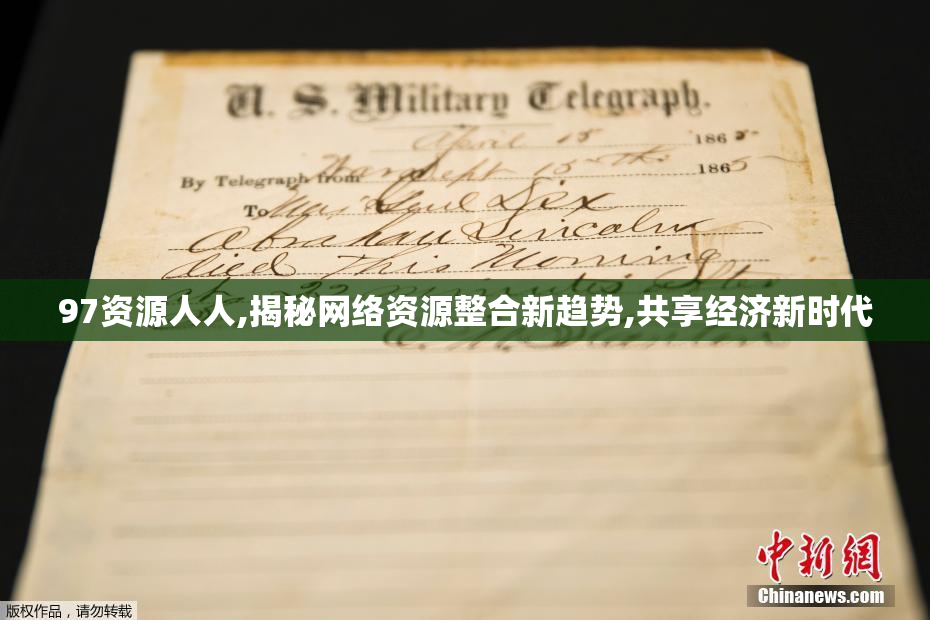 U. S. Military Telegraph.
April 15 1865
By Telegraph from War Dept 15th 1865
To Maj Genl Dix
Abraham Lincoln
died This Morning
22 minutes after
97资源人人,揭秘网络资源整合新趋势,共享经济新时代
中新网
Chinanews.com
版权作品，请勿转载